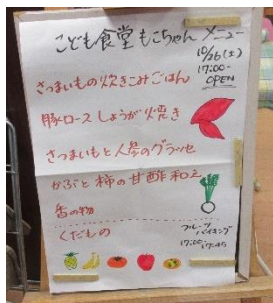 こども食堂もこちゃん メニュー
10/26(土)
17:00-
OPEN
さつまいもの炊きこみごはん
豚ロースしょうが焼き
さつまいもと人参のグラッセ
かぶと柿の甘酢和え
香の物
くだもの
フルーツ
バイキング
17:00-17:45